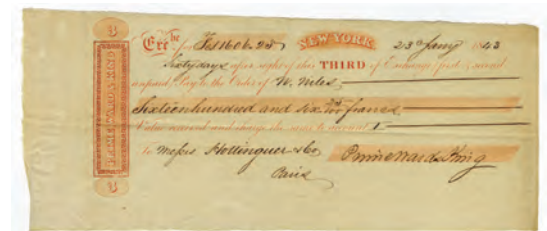 3
PRIME WARD & KING
3
Exc.he for Fcs 1606.25 NEW YORK 23d Jany 1843
Sixty days after sight of this THIRD of Exchange (first & second
unpaid) Pay to the Order of W. Niles
Sixteen hundred and six 25/100 francs
Value received and charge the same to account
to Messrs. Hottinguer & Co. Prime Ward & King
Paris